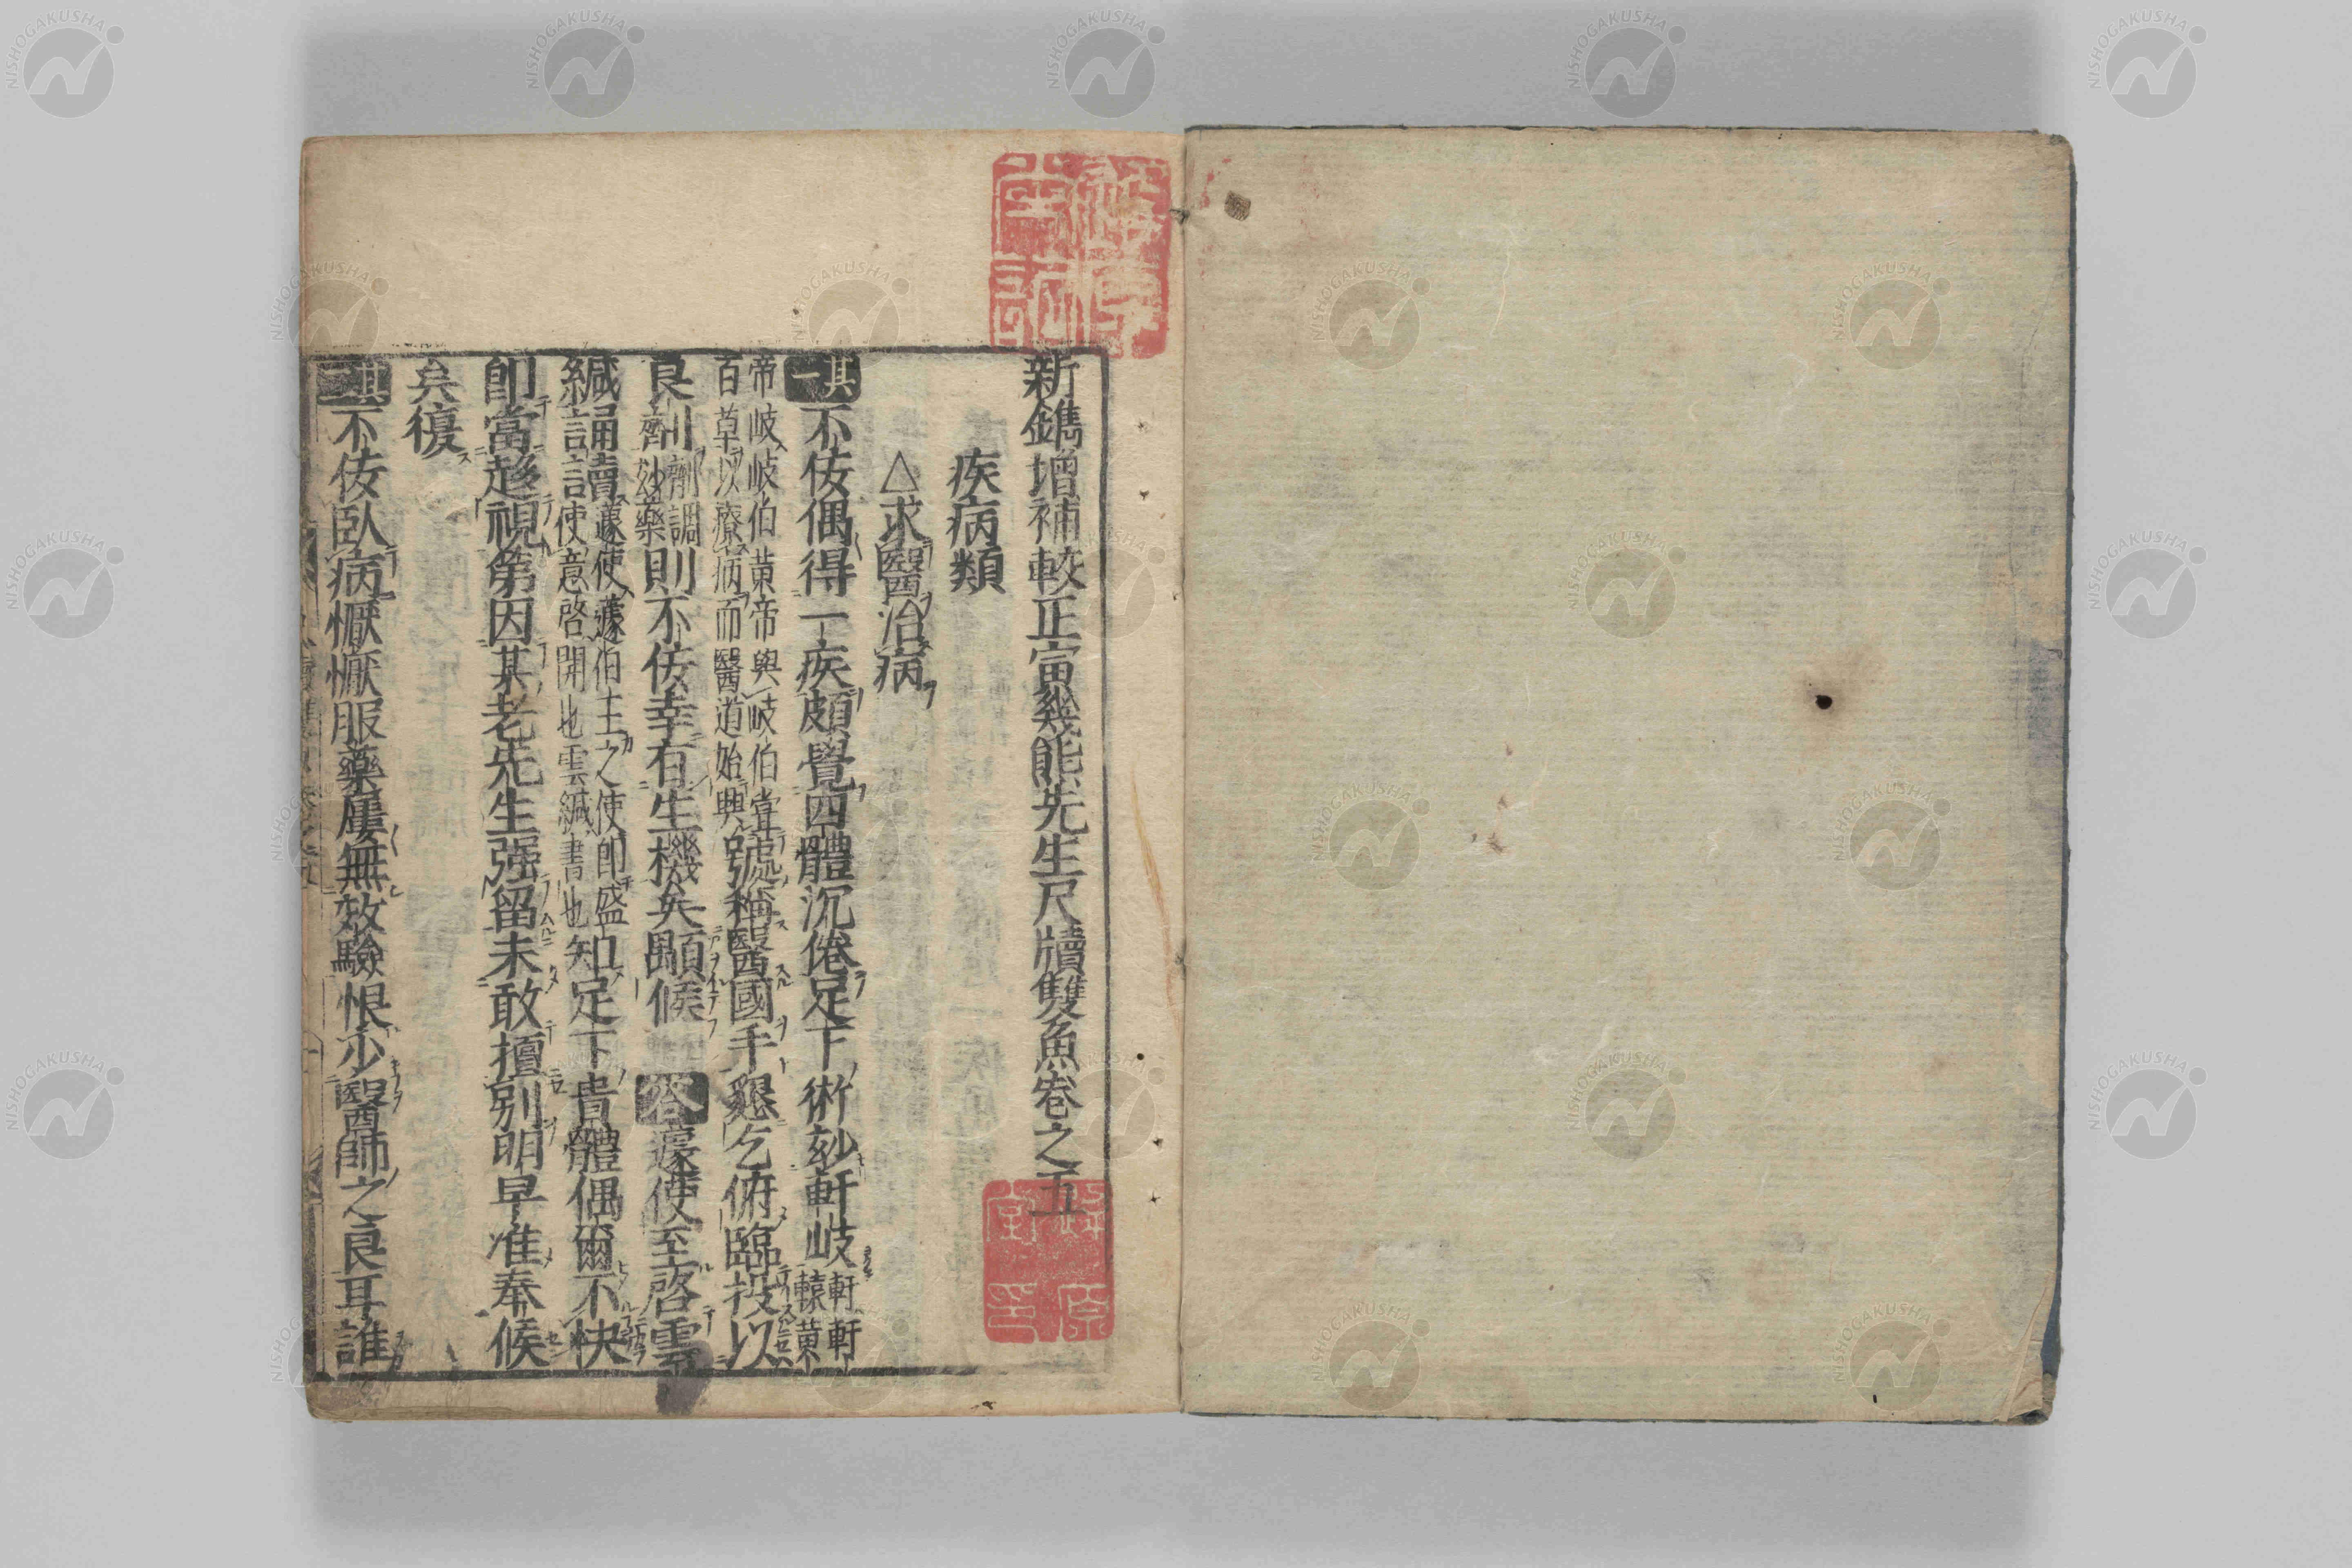 新鐫增補較正寅幾熊先生尺牘雙魚卷之五
疾病類
△求醫治病
其一 不佞偶得一疾頗覺四體沉倦足下術玅軒岐 軒軒轅黃
帝岐岐伯黃帝與岐伯嘗百草以療病而醫道始興 號稱醫國手懇乞俯臨投以
良劑 劑劑調玅藥 則不佞幸有生機矣顒候 答 蘧使至啓雲
緘誦讀 蘧使蘧伯玉之使即盛言言使意啓開也雲緘書也 知足下貴體偶爾不快
卽當趍視第因某老先生强留未敢擅別明早准奉候
矣復
其二 不佞臥病懨懨服藥屢無效驗恨少醫師之良耳誰